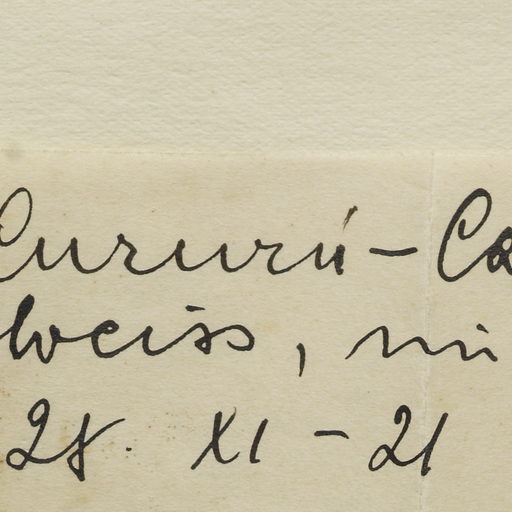 Cururú-Ca
weiss, mi
28. XI - 21